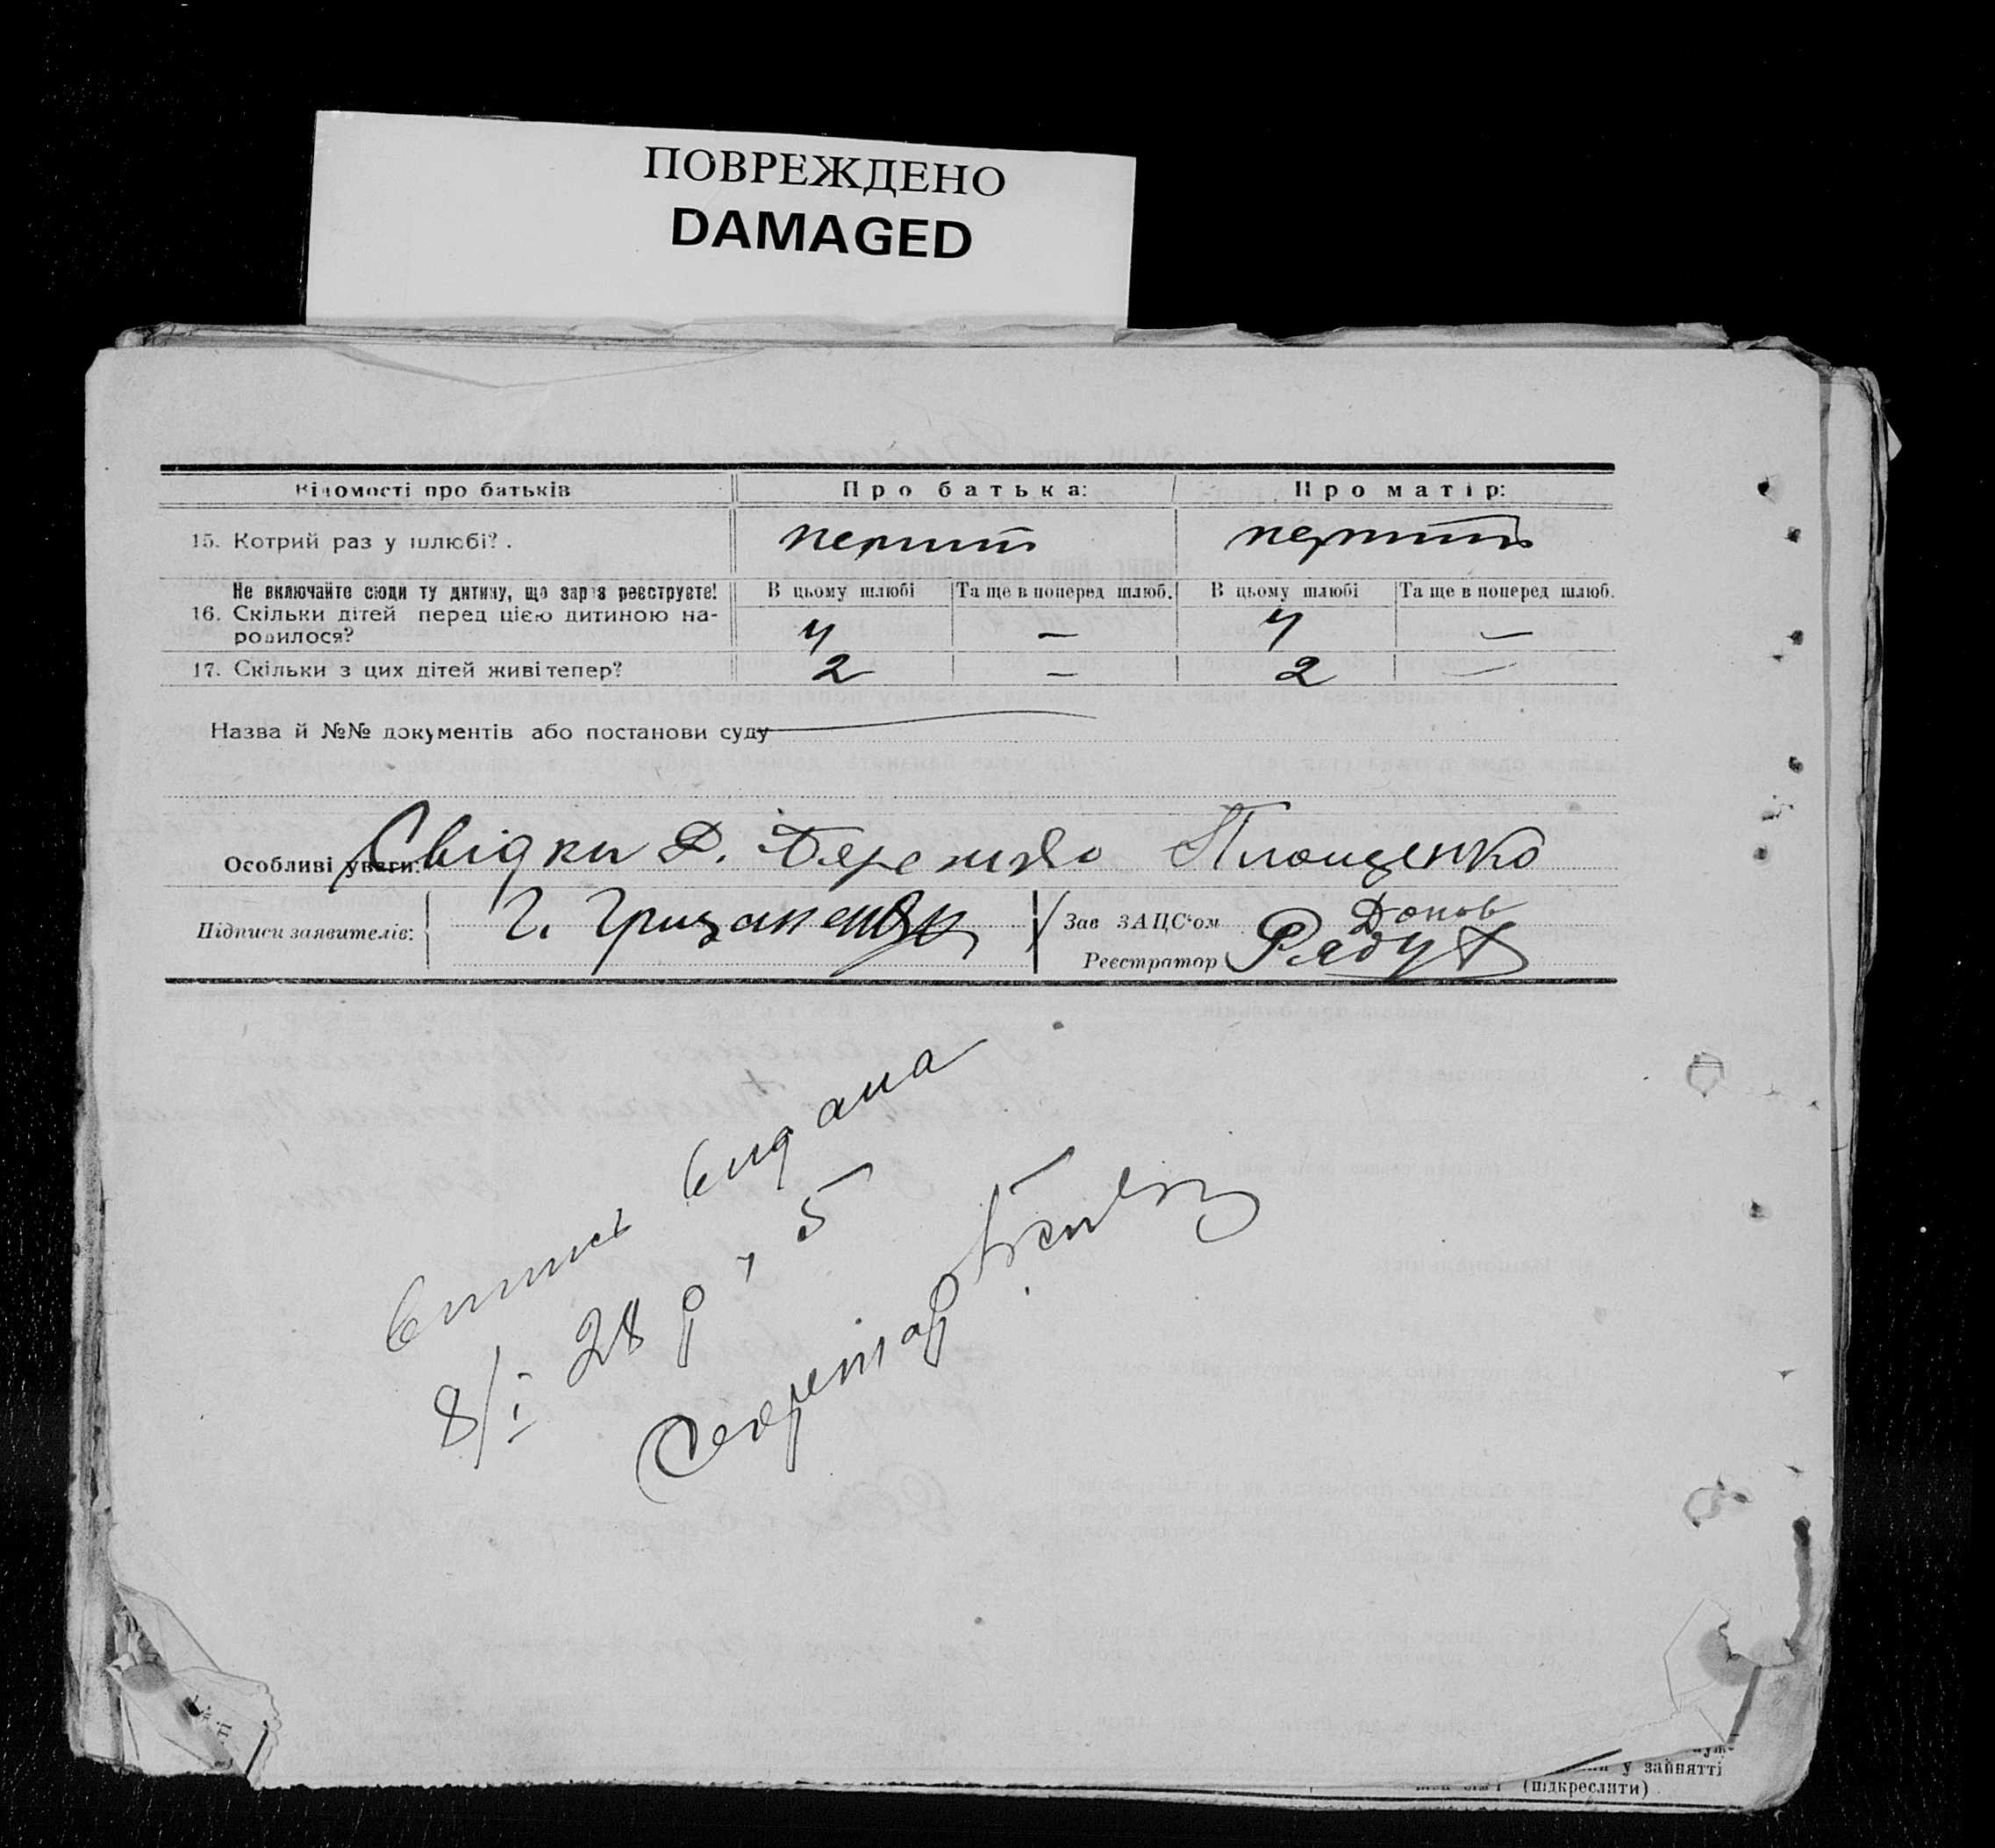 ПОВРЕЖДЕНО
DAMAGED
Відомості про батьків
Про батька:
Про матір:
15. Котрий раз у шлюбі? .
перший
перший
Не включайте сюди ту дитину, що зараз реєструєте!
В цьому шлюбі
Та ще в поперед шлюб.
В цьому шлюбі
Та ще в поперед шлюб.
16. Скільки дітей перед цією дитиною на-
родилося?
4
—
4
—
17. Скільки з цих дітей живі тепер?
2
—
2
—
Назва й №№ документів або постанови суду
Особливі уваги: Свідки Площенко
Підписи заявителів:
Г. Грицаненко
Зав ЗАЦС'ом
Реєстратор
выпись видана
8/I 28 р
5
Секретар
у зайнятті
(підкреслити)